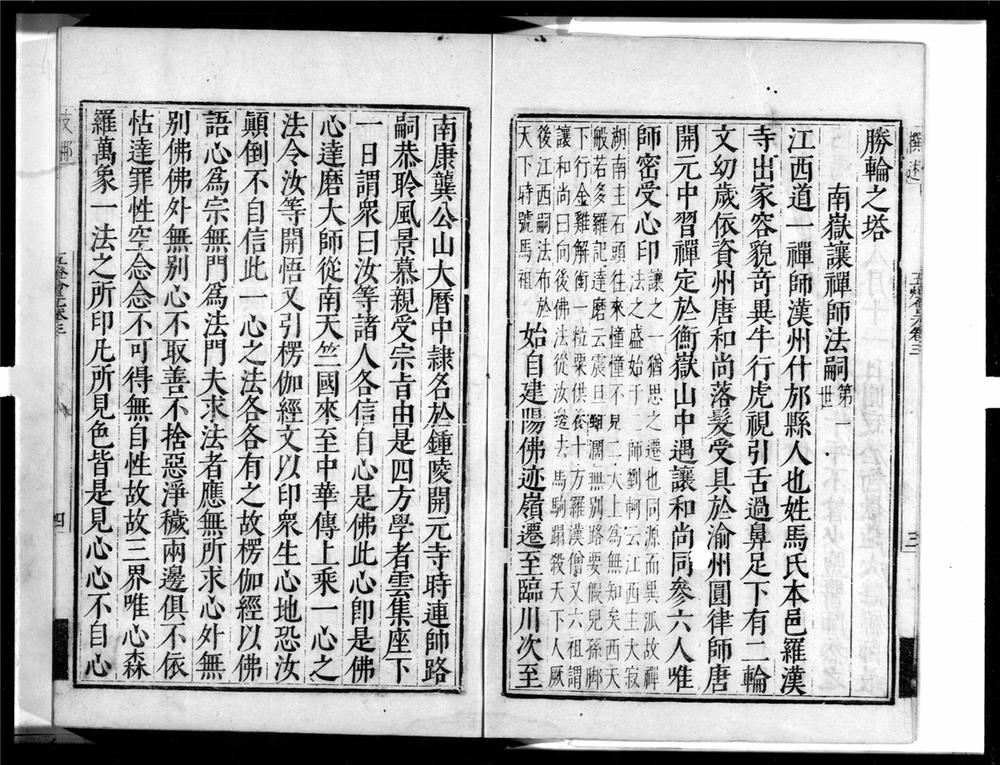 勝輪之塔
南嶽讓禪師法嗣第一世
江西道一禪師漢州什邡縣人也姓馬氏本邑羅漢
寺出家容貌奇異牛行虎視引舌過鼻足下有二輪
文幼歲依資州唐和尚落髮受具於渝州圓律師唐
開元中習禪定於衡嶽山中遇讓和尚同參六人唯
師密受心印
讓之一猶思之遷也同源而異派故禪
法之盛始于二師劉軻云江西主大寂
湖南主石頭往來憧憧不見二大士爲無知矣西天
般若多羅記達磨云震旦雖闊無別路要假兒孫脚
下行金雞解銜一粒粟供養十方羅漢僧又六祖謂
讓和尚曰向後佛法從汝邊去馬駒蹋殺天下人厥
後江西嗣法布於
天下時號馬祖
始自建陽佛迹嶺遷至臨川次至
五燈會元卷三
三
南康龔公山大曆中隸名於鍾陵開元寺時連帥路
嗣恭聆風景慕親受宗旨由是四方學者雲集座下
一日謂衆曰汝等諸人各信自心是佛此心卽是佛
心達磨大師從南天竺國來至中華傳上乘一心之
法令汝等開悟又引楞伽經文以印衆生心地恐汝
顚倒不自信此一心之法各各有之故楞伽經以佛
語心爲宗無門爲法門夫求法者應無所求心外無
別佛佛外無別心不取善不捨惡淨穢兩邊俱不依
怙達罪性空念念不可得無自性故故三界唯心森
羅萬象一法之所印凡所見色皆是見心心不自心
五燈會元卷三
四